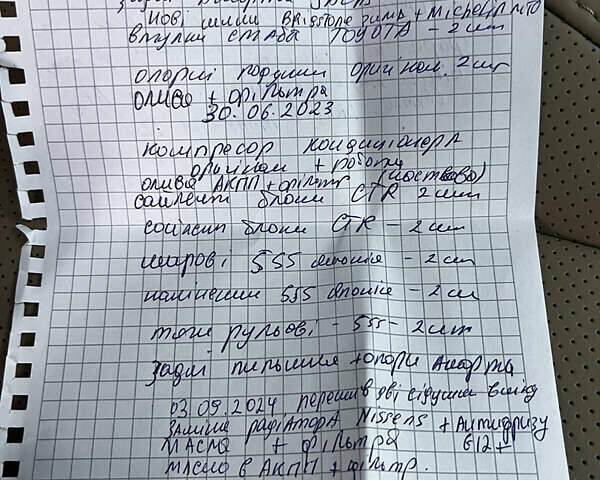 Нові шини Bridgstone зима + Michelin літо
втулки стаба TOYOTA - 2 шт
опорні подушки оригінал. 2 шт
олива + фільтра
30.06.2023
компресор кондиціонера
оригінал + робота
олива АКПП + фільтр (часткова)
сайлент блоки CTR 2 шт
сайлент блоки CTR - 2 шт
шарові 555 Японія - 2 шт
наконечники 555 Японія - 2 шт
тяги рульові - 555 - 2 шт
задні пильники + опори Аморта
03.09.2024 перешив дві сідушки
заміна радіатора Nissens + Антифризу
масла + фільтра G12+
масло в АКПП + фільтр.